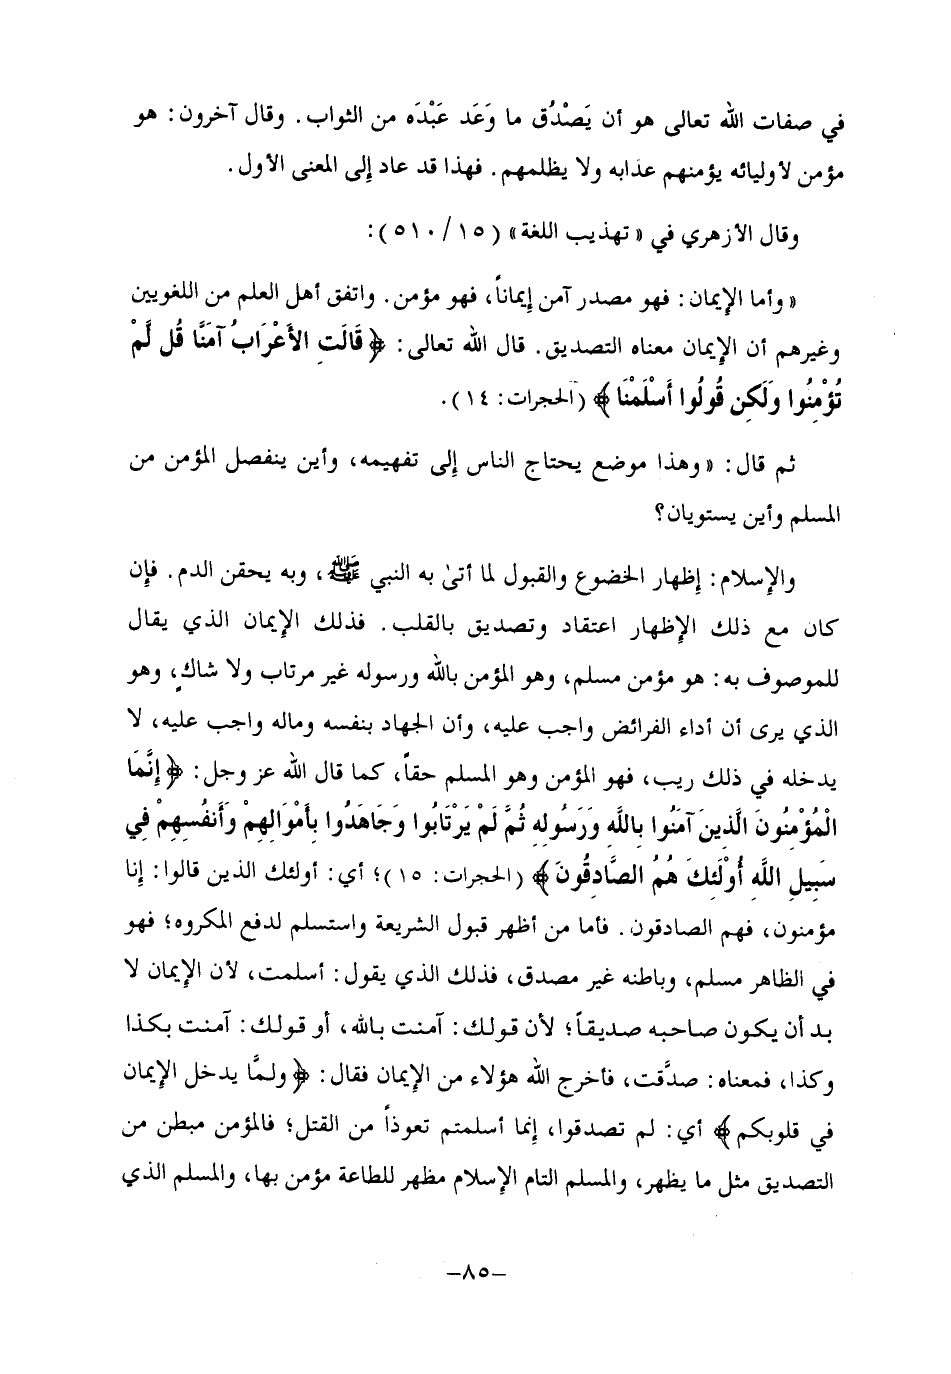 في صفات الله تعالى هو أن يَصْدُق ما وَعَد عَبْدَه من الثواب. وقال آخرون: هو
مؤمن لأوليائه يؤمنهم عذابه ولا يظلمهم. فهذا قد عاد إلى المعنى الأول.
وقال الأزهري في « تهذيب اللغة» (١٥/ ٥١٠):
« وأما الإيمان: فهو مصدر آمن إيماناً، فهو مؤمن. واتفق أهل العلم من اللغويين
وغيرهم أن الإيمان معناه التصديق. قال الله تعالى: ﴿ قَالَتِ الأَعْرَابُ آمَنَّا قُل لَّمْ
تُؤْمِنُوا وَلَكِن قُولُوا أَسْلَمْنَا ﴾ (الحجرات: ١٤).
ثم قال: « وهذا موضع يحتاج الناس إلى تفهيمه، وأين ينفصل المؤمن من
المسلم وأين يستويان؟
والإسلام: إظهار الخضوع والقبول لما أتىٰ به النبي ﷺ، وبه يحقن الدم. فإن
كان مع ذلك الإظهار اعتقاد وتصديق بالقلب. فذلك الإيمان الذي يقال
للموصوف به: هو مؤمن مسلم، وهو المؤمن بالله ورسوله غير مرتاب ولا شاكٍ، وهو
الذي يرى أن أداء الفرائض واجب عليه، وأن الجهاد بنفسه وماله واجب عليه، لا
يدخله في ذلك ريب، فهو المؤمن وهو المسلم حقاً، كما قال الله عز وجل: ﴿ إِنَّمَا
الْمُؤْمِنُونَ الَّذِينَ آمَنُوا بِاللَّهِ وَرَسُولِهِ ثُمَّ لَمْ يَرْتَابُوا وَجَاهَدُوا بِأَمْوَالِهِمْ وَأَنفُسِهِمْ فِي
سَبِيلِ اللَّهِ أُوْلَئِكَ هُمُ الصَّادِقُونَ ﴾ (الحجرات: ١٥)؛ أي: أولئك الذين قالوا: إنا
مؤمنون، فهم الصادقون. فأما من أظهر قبول الشريعة واستسلم لدفع المكروه؛ فهو
في الظاهر مسلم، وباطنه غير مصدق، فذلك الذي يقول: أسلمت، لأن الإيمان لا
بد أن يكون صاحبه صديقاً؛ لأن قولك: آمنت بالله، أو قولك: آمنت بكذا
وكذا، فمعناه: صدَّقت، فأخرج الله هؤلاء من الإيمان فقال: ﴿ ولمَّا يدخل الإيمان
في قلوبكم ﴾ أي: لم تصدقوا، إنما أسلمتم تعوذاً من القتل؛ فالمؤمن مبطن من
التصديق مثل ما يظهر، والمسلم التام الإسلام مظهر للطاعة مؤمن بها، والمسلم الذي
–٨٥–